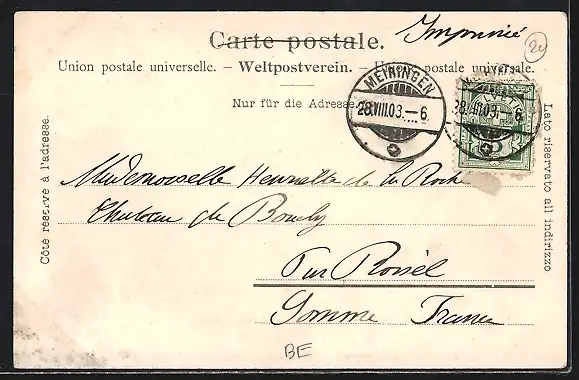 Carte postale.
Imprimé
24
Union postale universelle. – Weltpostverein. – Unione postale universale.
Nur für die Adresse.
MEIRINGEN
28.VIII.03.–6
28.VIII.03.–6
HELVETIA
5
Côté réservé à l'adresse.
Lato riservato all indirizzo
Mademoiselle Henriette de la Roche
Chateau de Bouchy
Par Roisel
Somme France
BE